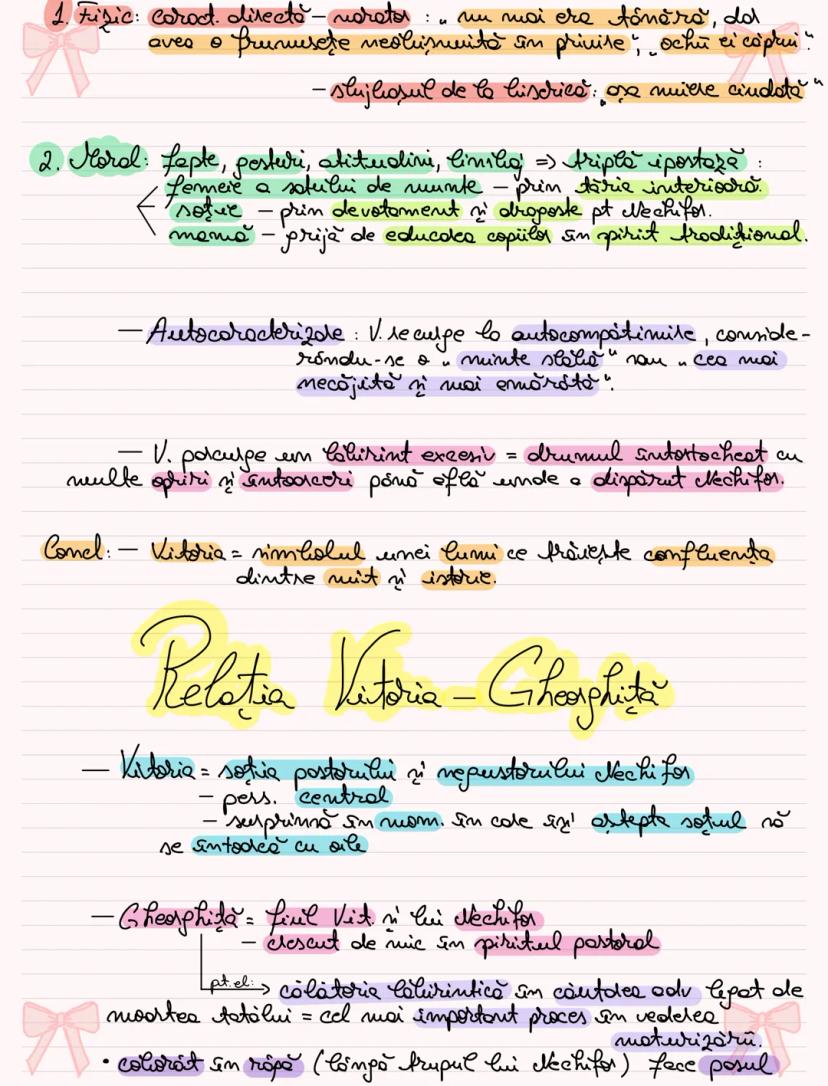 1. Fizic: caract. directă – narator : „ nu mai era tânără, dar
avea o frumusețe neobișnuită în privire", „ ochii ei căprui".
– slujbașul de la biserică: „așa muiere ciudată"
2. Moral: fapte, gesturi, atitudini, limbaj => triplă ipostază :
femeie a satului de munte – prin tăria interioară.
soție – prin devotament și dragoste pt Nechifor.
mamă – grijă de educarea copiilor în spirit tradițional.
– Autocaracterizare : V. recurge la autocompătimire, conside-
rându-se o „ minte slabă" sau „ cea mai
necăjită și mai amărâtă".
– V. parcurge un labirint excesiv = drumul întortocheat cu
multe opriri și întoarceri până află unde a dispărut Nechifor.
Concl: – Vitoria = simbolul unei lumi ce trăiește confluența
dintre mit și istorie.
Relația Vitoria – Gheorghiță
– Vitoria = soția păstorului și negustorului Nechifor
– pers. central
– surprinsă în mom. în care își aștepta soțul să
se întoarcă cu oile
– Gheorghiță = fiul Vit. și lui Nechifor
– crescut de mic în spiritul pastoral
pt. el: → călătoria labirintică în căutarea adv legat de
moartea tatălui = cel mai important proces în vederea
maturizării.
• coborât în râpă (lângă trupul lui Nechifor) face pasul